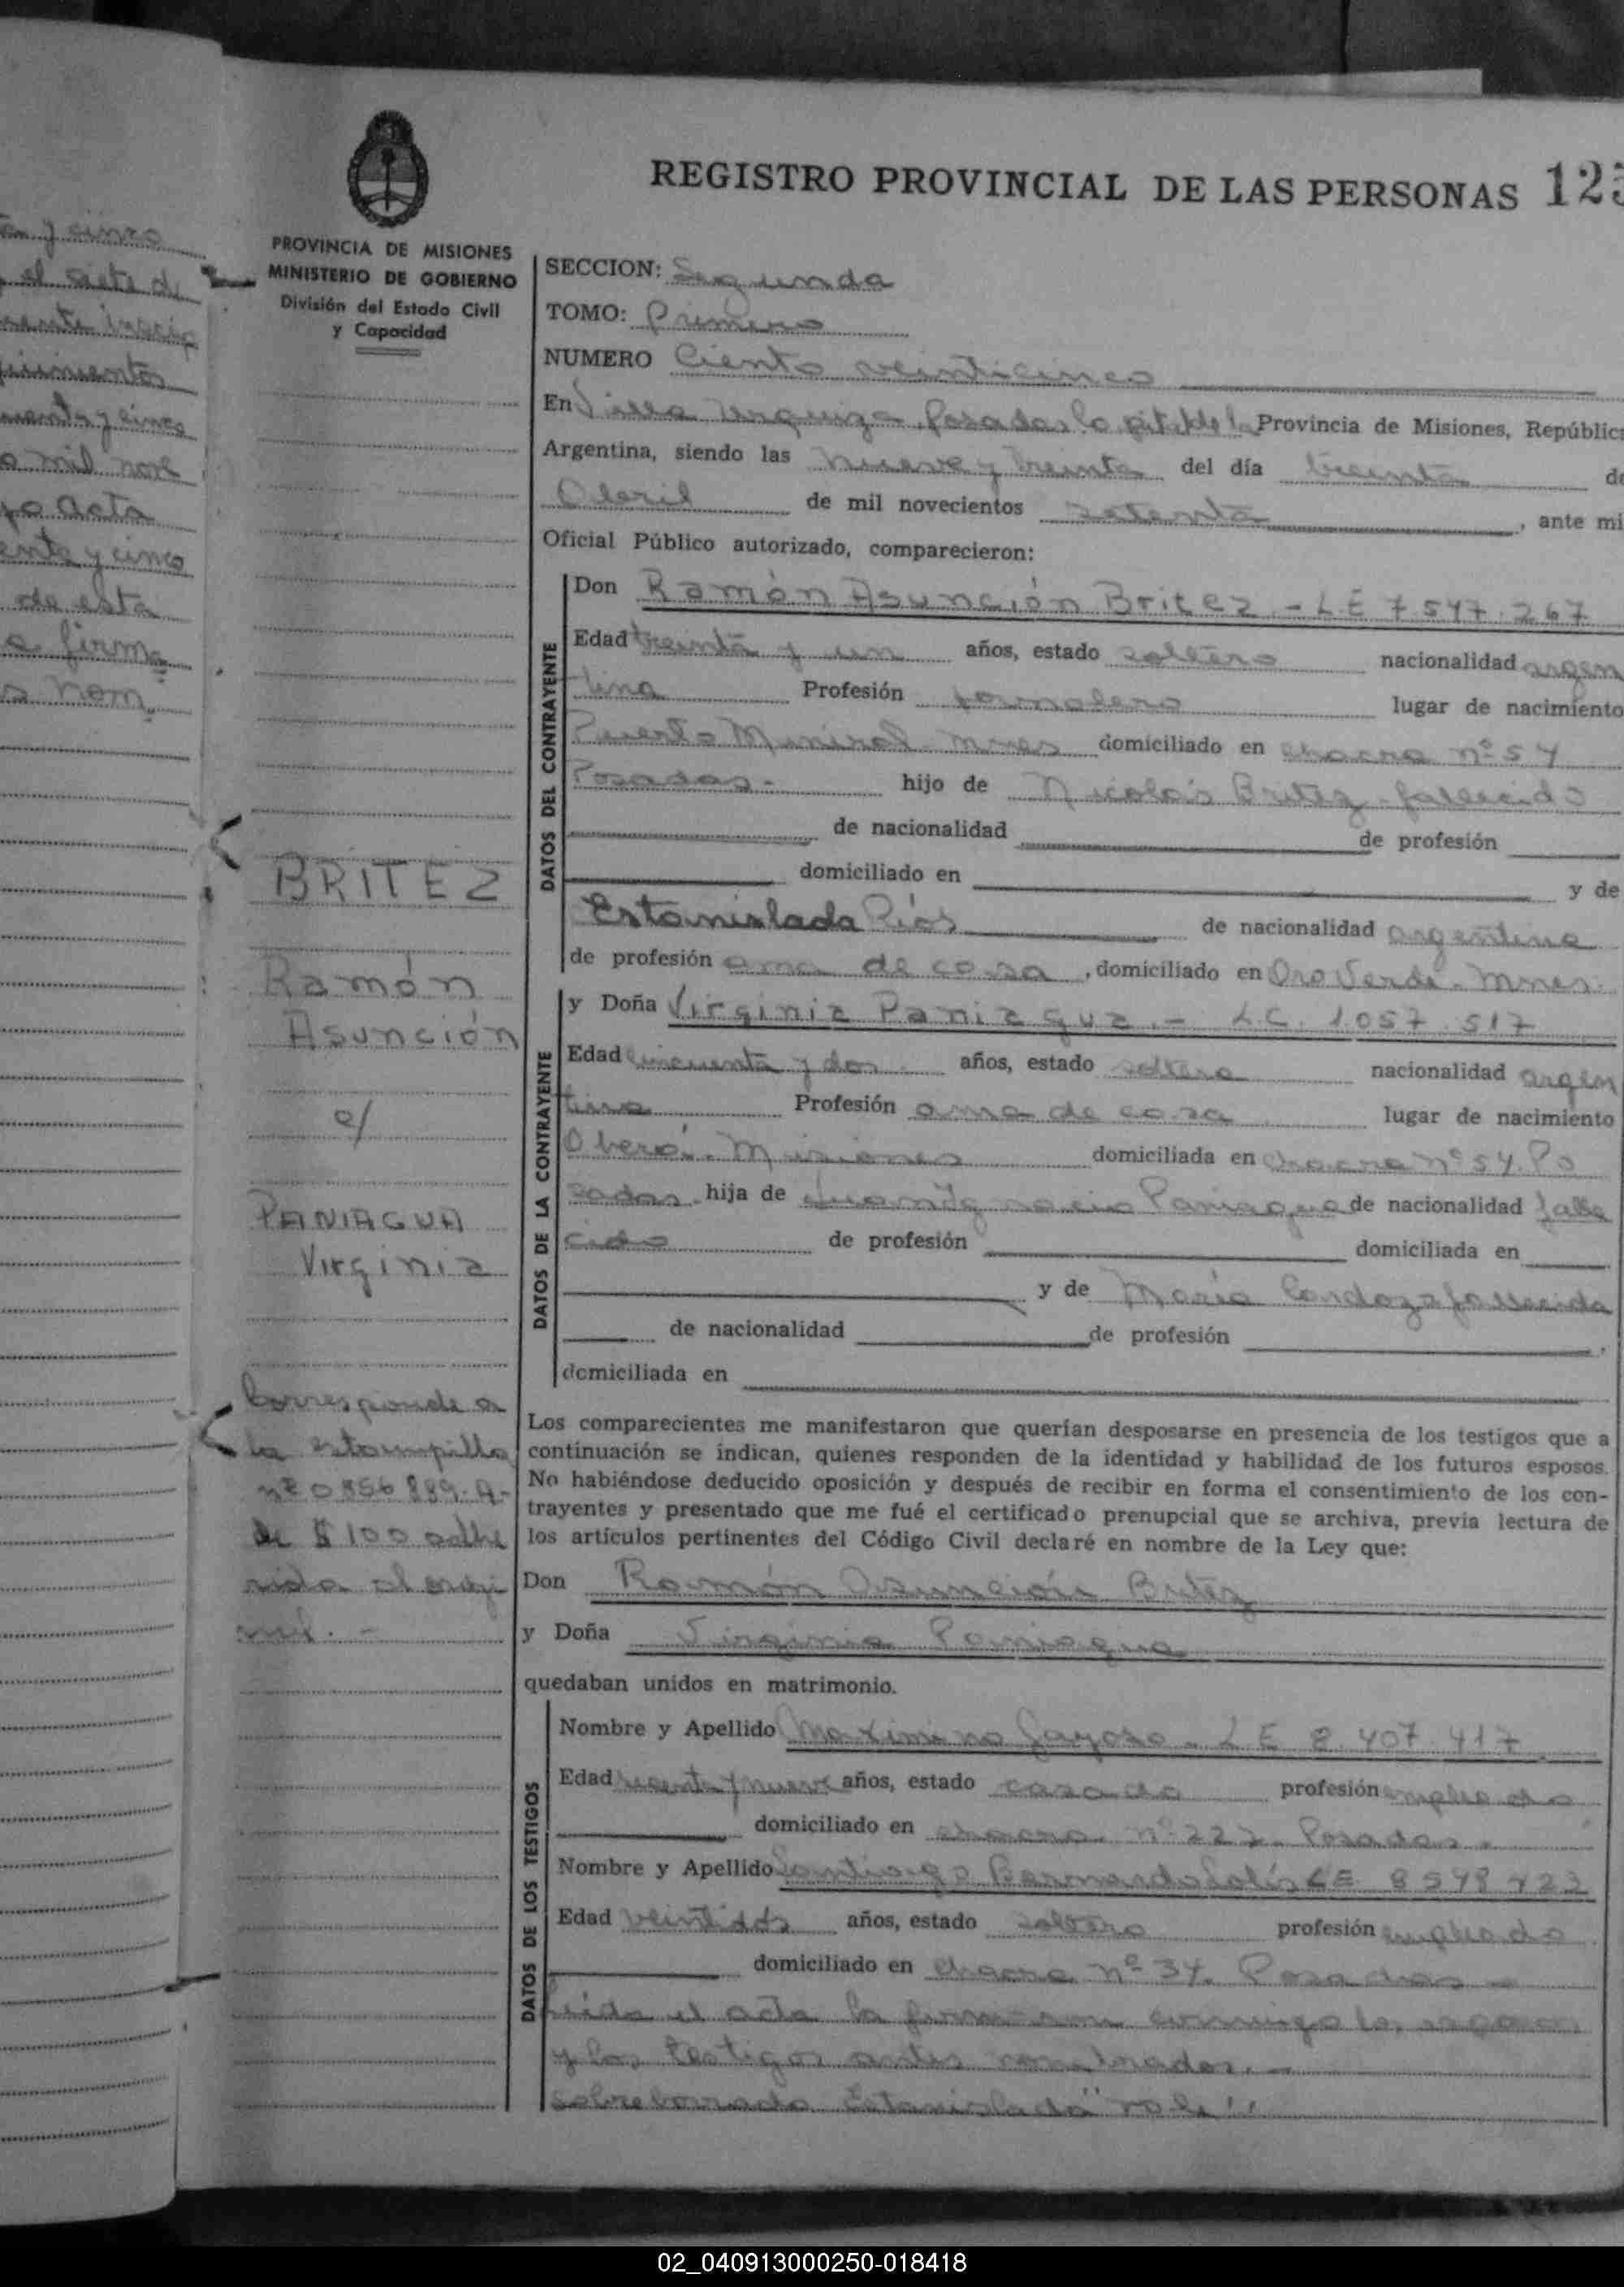 REGISTRO PROVINCIAL DE LAS PERSONAS 125
PROVINCIA DE MISIONES
MINISTERIO DE GOBIERNO
División del Estado Civil
y Capacidad
SECCION: Segunda
TOMO: Primero
NUMERO Ciento veinticinco
En Villa Urquiza - Posadas la Provincia de Misiones, República
Argentina, siendo las nueve y treinta del día treinta de
Abril de mil novecientos setenta, ante mi
Oficial Público autorizado, comparecieron:
DATOS DEL CONTRAYENTE
Don Ramón Asunción Britez - LE 7.547.267
Edad treinta y un años, estado soltero nacionalidad argen
tina Profesión jornalero lugar de nacimiento
Puerto Mineral - Mnes domiciliado en chacra nº 54
Posadas.- hijo de Nicolás Britez - fallecido
de nacionalidad de profesión
domiciliado en y de
Estanislada Ríos de nacionalidad argentina
de profesión ama de casa, domiciliado en Oro Verde - Mnes.
DATOS DE LA CONTRAYENTE
y Doña Virginia Paniagua.- L.C. 1.057.517
Edad cincuenta y dos años, estado soltera nacionalidad argen
tina Profesión ama de casa lugar de nacimiento
Oberá. Misiones domiciliada en chacra nº 54. Po
sadas hija de Juan Ignacio Paniagua de nacionalidad falle
cido de profesión domiciliada en
y de María Cardozo fallecida
de nacionalidad de profesión
domiciliada en
Los comparecientes me manifestaron que querían desposarse en presencia de los testigos que a
continuación se indican, quienes responden de la identidad y habilidad de los futuros esposos.
No habiéndose deducido oposición y después de recibir en forma el consentimiento de los con-
trayentes y presentado que me fué el certificado prenupcial que se archiva, previa lectura de
los artículos pertinentes del Código Civil declaré en nombre de la Ley que:
Don Ramón Asunción Britez
y Doña Virginia Paniagua
quedaban unidos en matrimonio.
DATOS DE LOS TESTIGOS
Nombre y Apellido Maximino Gayoso - LE 8.407.417
Edad y nueve años, estado casado profesión empleado
domiciliado en chacra nº 227 - Posadas.
Nombre y Apellido Santiago Bernardo Solís LE 8548 722
Edad veintidós años, estado soltero profesión empleado
domiciliado en chacra nº 34. Posadas -
Leída el acta la firmaron conmigo los esposos
y los testigos antes nombrados. -
sobreborrado "Estanislada" vale
BRITEZ
Ramón
Asunción
c/
PANIAGUA
Virginia
Corresponde a
la estampilla
nº 0856889-A-
de $ 100 adhe
rida al origi
nal. -
y cinco
el siete de
y cinco
mil nove
acta
y cinco
de esta
firma
nom
02_040913000250-018418